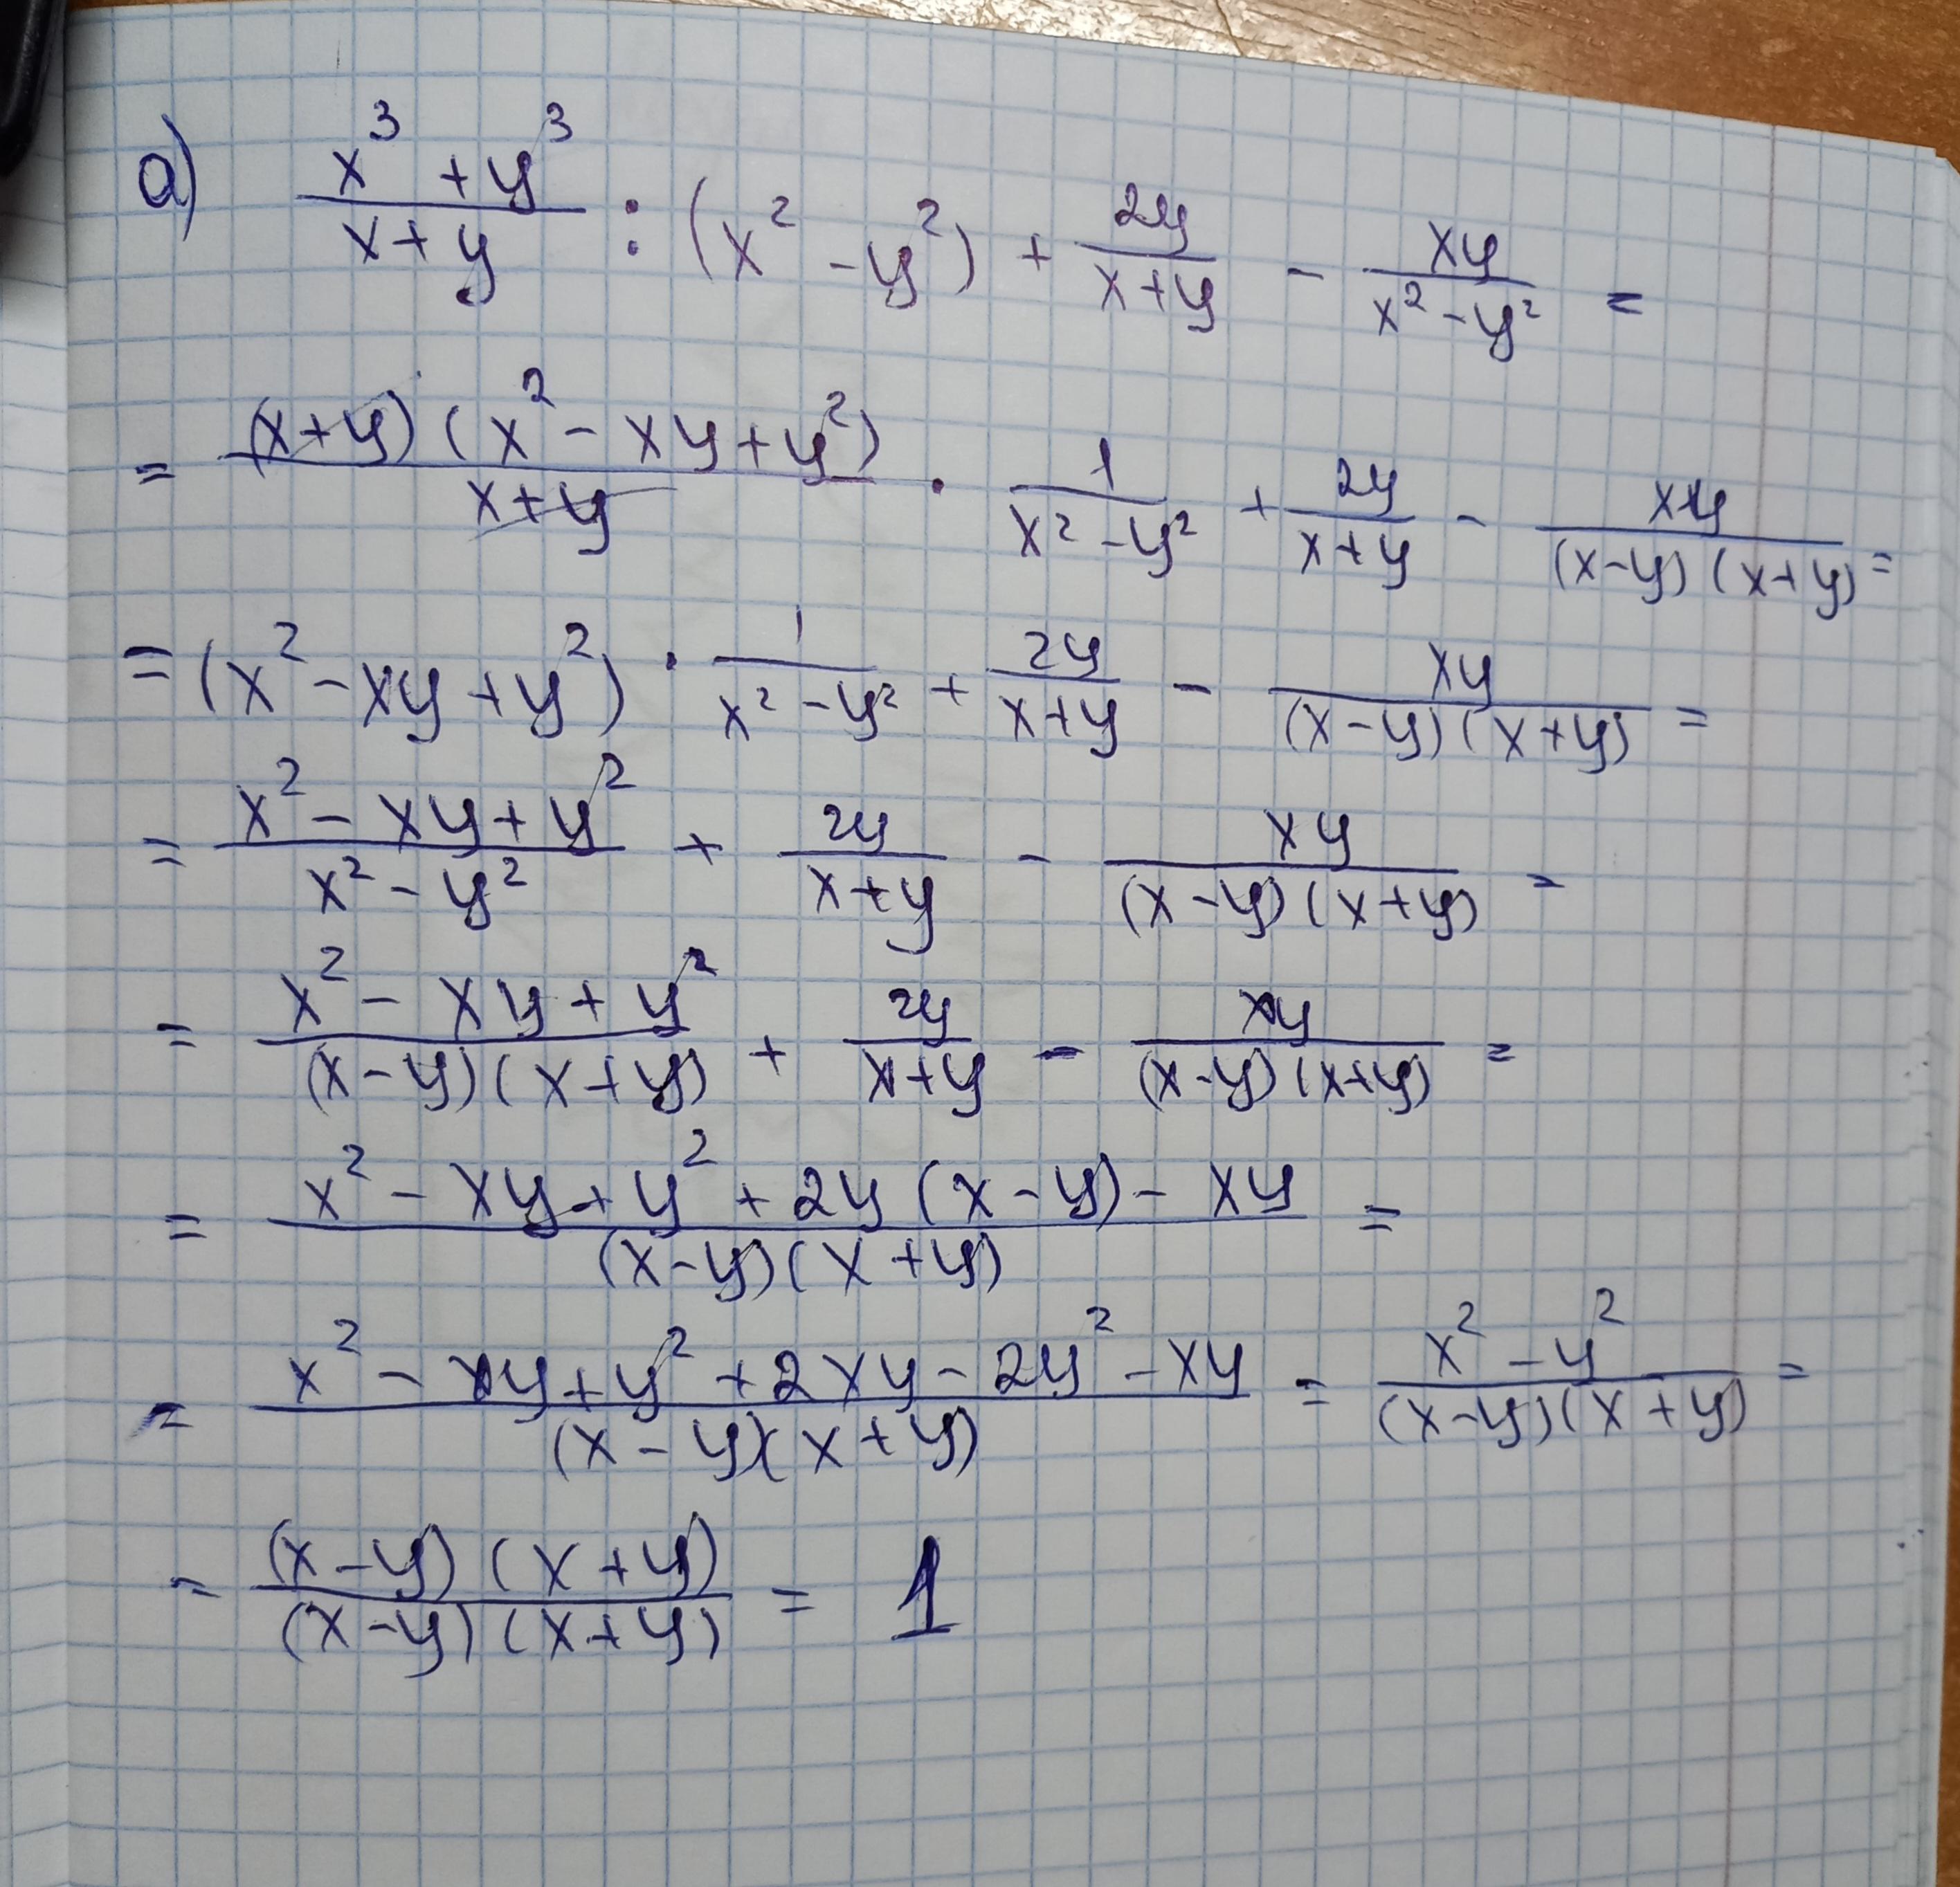 а) (x³ + y³)/(x + y) : (x² - y²) + 2y/(x + y) - xy/(x² - y²) =
= (x + y)(x² - xy + y²)/(x + y) · 1/(x² - y²) + 2y/(x + y) - xy/((x - y)(x + y)) =
= (x² - xy + y²) · 1/(x² - y²) + 2y/(x + y) - xy/((x - y)(x + y)) =
= (x² - xy + y²)/(x² - y²) + 2y/(x + y) - xy/((x - y)(x + y)) =
= (x² - xy + y²)/((x - y)(x + y)) + 2y/(x + y) - xy/((x - y)(x + y)) =
= (x² - xy + y² + 2y(x - y) - xy)/((x - y)(x + y)) =
= (x² - xy + y² + 2xy - 2y² - xy)/((x - y)(x + y)) = (x² - y²)/((x - y)(x + y)) =
= (x - y)(x + y)/((x - y)(x + y)) = 1